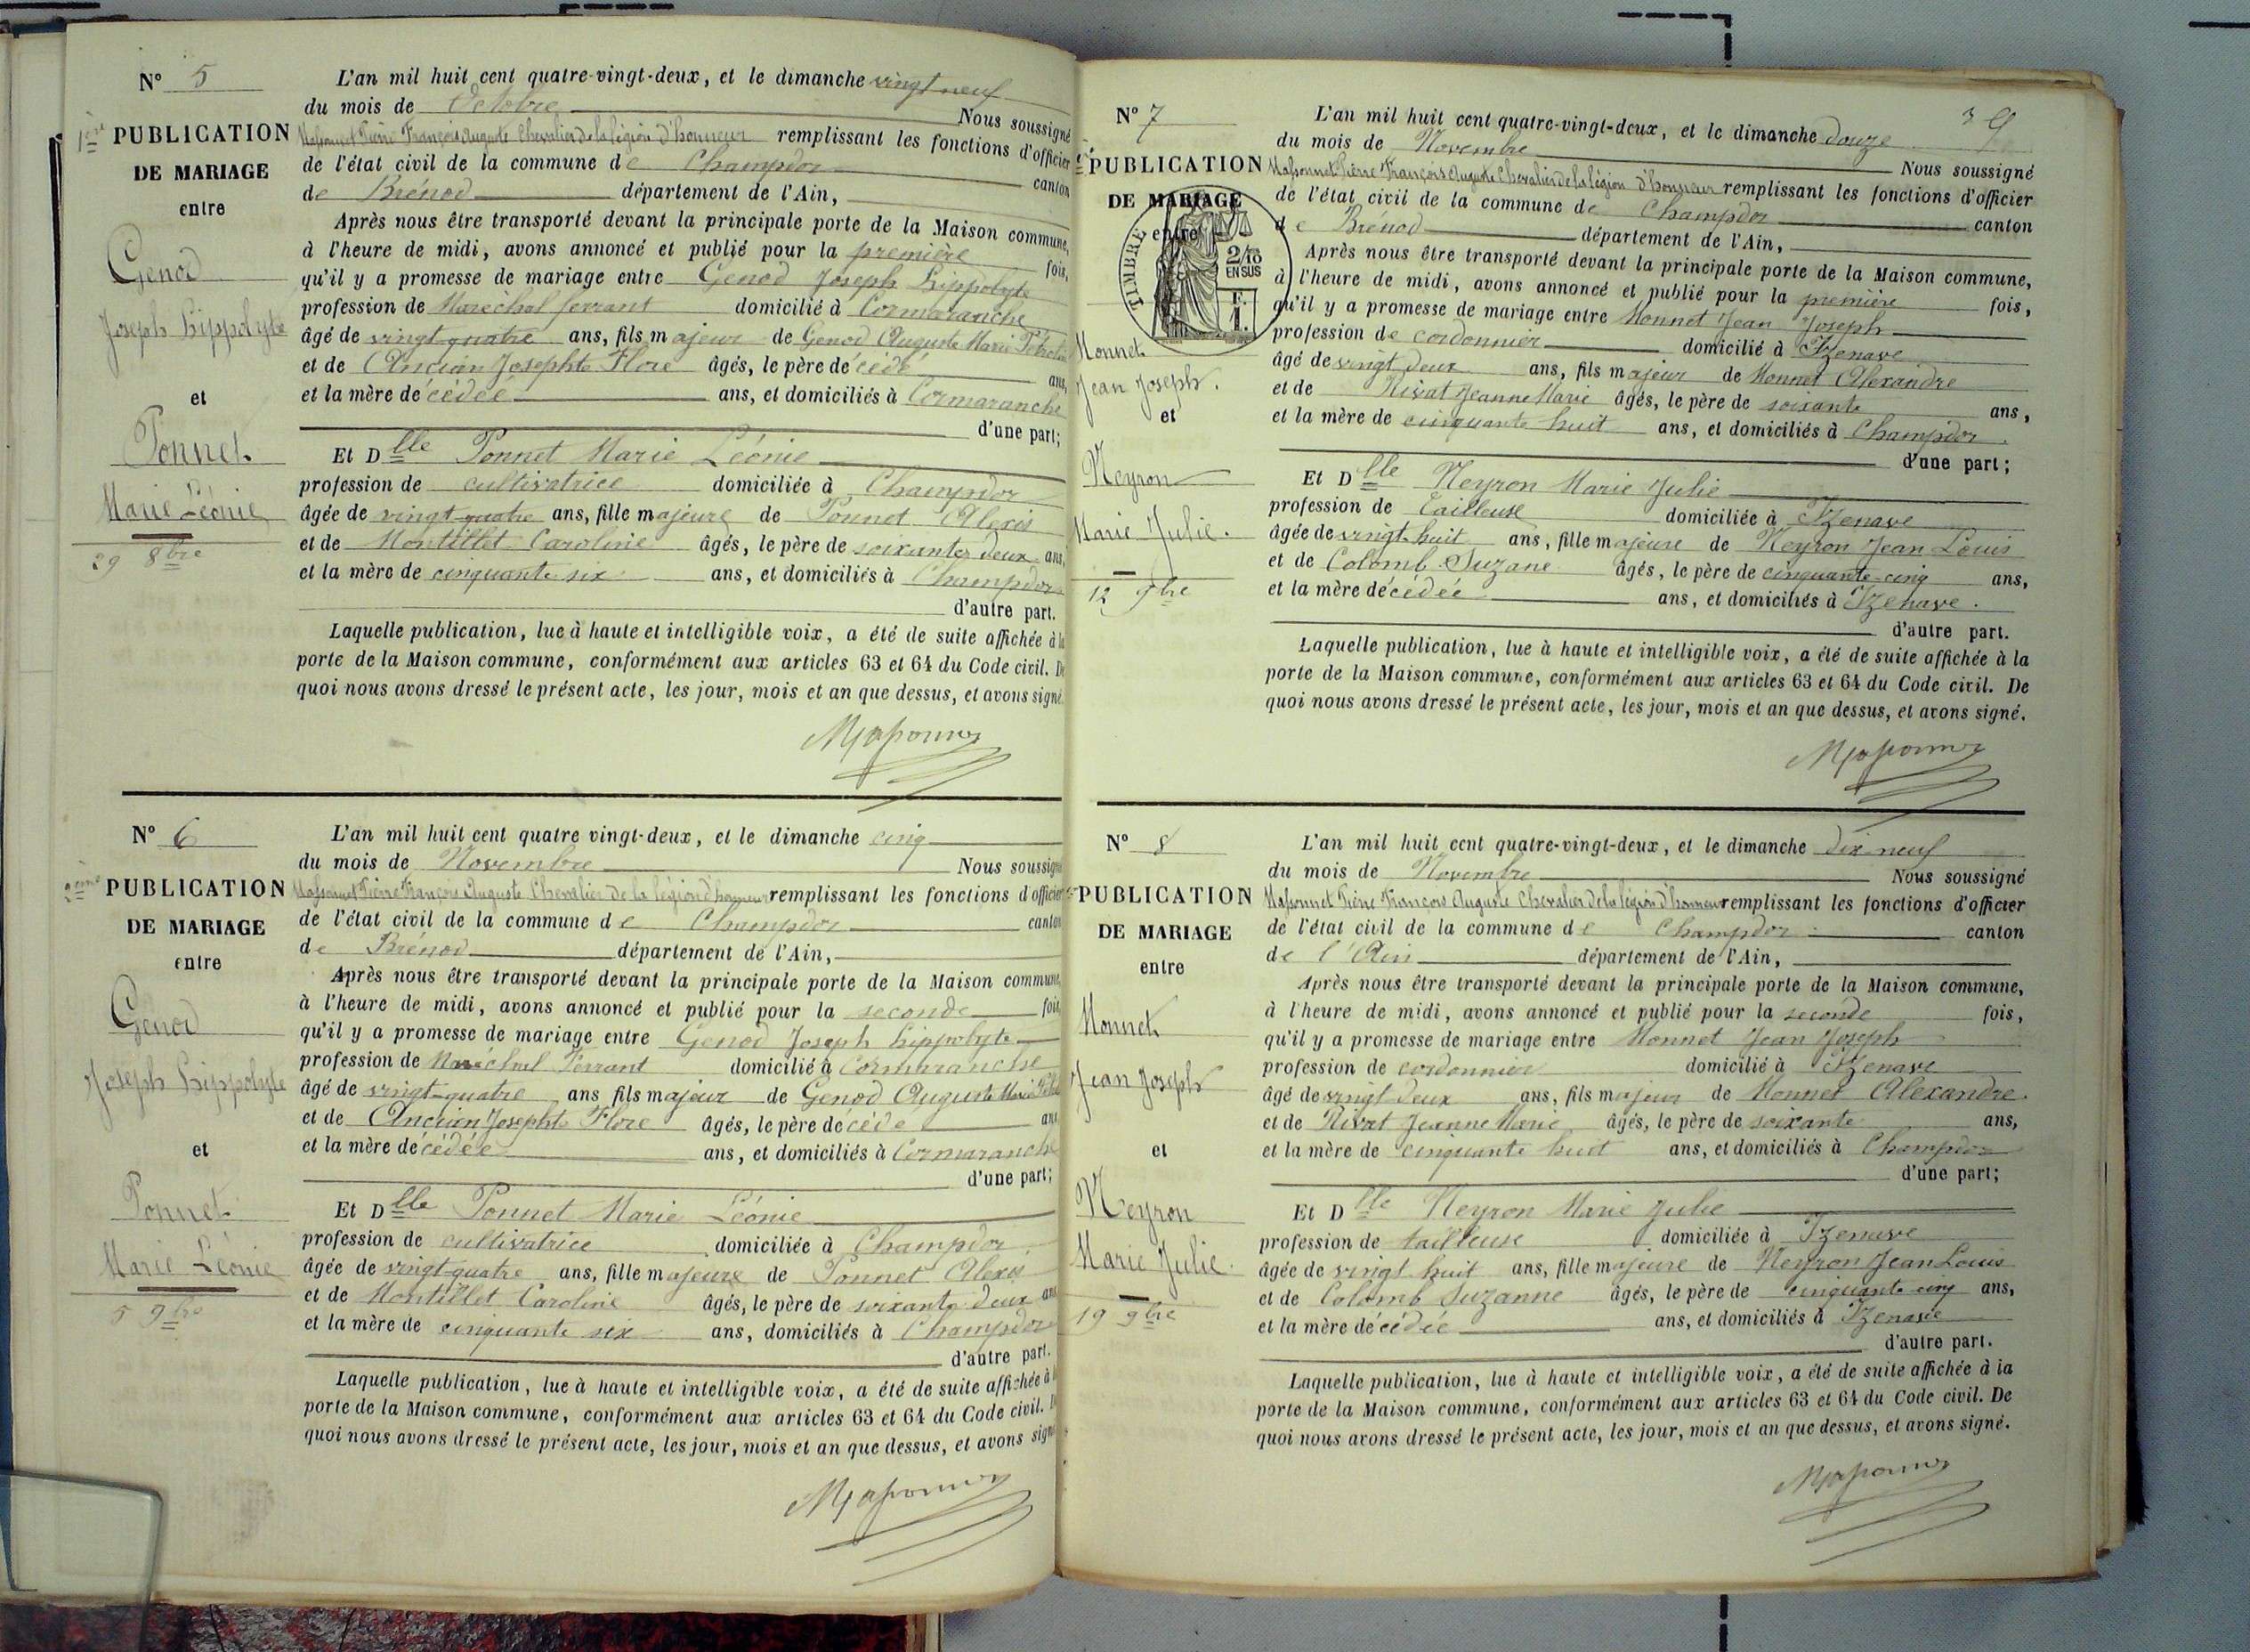 N° 5
1ère PUBLICATION
DE MARIAGE
entre
Genod
Joseph Hippolyte
et
Ponnet
Marie Léonie
29 8bre
L'an mil huit cent quatre-vingt-deux, et le dimanche vingt neuf
du mois de Octobre Nous soussigné
Massonnet Pierre François Auguste Chevalier de la légion d'honneur remplissant les fonctions d'officier
de l'état civil de la commune de Champdor canton
de Brénod département de l'Ain,
Après nous être transporté devant la principale porte de la Maison commune,
à l'heure de midi, avons annoncé et publié pour la première fois,
qu'il y a promesse de mariage entre Genod Joseph Hippolyte
profession de Maréchal ferrant domicilié à Cormaranche
âgé de vingt-quatre ans, fils majeur de Genod Auguste Marie
et de Ancian Josephte Flore âgés, le père décédé ans,
et la mère décédée ans, et domiciliés à Cormaranche
d'une part;
Et Dlle Ponnet Marie Léonie
profession de cultivatrice domiciliée à Champdor
âgée de vingt-quatre ans, fille majeure de Ponnet Alexis
et de Montillet Caroline âgés, le père de soixante deux ans,
et la mère de cinquante six ans, et domiciliés à Champdor
d'autre part.
Laquelle publication, lue à haute et intelligible voix, a été de suite affichée à la
porte de la Maison commune, conformément aux articles 63 et 64 du Code civil. De
quoi nous avons dressé le présent acte, les jour, mois et an que dessus, et avons signé.
Massonnet
N° 6
2ème PUBLICATION
DE MARIAGE
entre
Genod
Joseph Hippolyte
et
Ponnet
Marie Léonie
5 9bre
L'an mil huit cent quatre vingt-deux, et le dimanche cinq
du mois de Novembre Nous soussigné
Massonnet Pierre François Auguste Chevalier de la légion d'honneur remplissant les fonctions d'officier
de l'état civil de la commune de Champdor canton
de Brenod département de l'Ain,
Après nous être transporté devant la principale porte de la Maison commune,
à l'heure de midi, avons annoncé et publié pour la seconde fois,
qu'il y a promesse de mariage entre Genod Joseph hippolyte
profession de Maréchal Ferrant domicilié à Cormaranche
âgé de vingt-quatre ans fils majeur de Genod Auguste Marie
et de Ancian Josephte Flore âgés, le père décédé ans
et la mère décédée ans, et domiciliés à Cormaranche
d'une part;
Et Dlle Ponnet Marie Léonie
profession de cultivatrice domiciliée à Champdor
âgée de vingt-quatre ans, fille majeure de Ponnet Alexis
et de Montillet Caroline âgés, le père de soixante deux ans
et la mère de cinquante six ans, domiciliés à Champdor
d'autre part.
Laquelle publication, lue à haute et intelligible voix, a été de suite affichée à la
porte de la Maison commune, conformément aux articles 63 et 64 du Code civil. De
quoi nous avons dressé le présent acte, les jour, mois et an que dessus, et avons signé
Massonnet
N° 7
PUBLICATION
DE MARIAGE
entre
TIMBRE
2/10
EN SUS
F.
1.
Monnet
Jean Joseph.
et
Neyron
Marie Julie.
12 9bre
L'an mil huit cent quatre-vingt-deux, et le dimanche douze
du mois de Novembre Nous soussigné
Massonnet Pierre François Auguste Chevalier de la légion d'honneur remplissant les fonctions d'officier
de l'état civil de la commune de Champdor canton
de Brénod département de l'Ain,
Après nous être transporté devant la principale porte de la Maison commune,
à l'heure de midi, avons annoncé et publié pour la première fois,
qu'il y a promesse de mariage entre Monnet Jean Joseph
profession de cordonnier domicilié à Izenave
âgé de vingt deux ans, fils majeur de Monnet Alexandre
et de Rivat Jeanne Marie âgés, le père de soixante ans,
et la mère de cinquante huit ans, et domiciliés à Champdor.
d'une part;
Et Dlle Neyron Marie Julie
profession de tailleuse domiciliée à Izenave
âgée de vingt-huit ans, fille majeure de Neyron Jean Louis
et de Colomb Suzane âgés, le père de cinquante-cinq ans,
et la mère décédée ans, et domiciliés à Izenave.
d'autre part.
Laquelle publication, lue à haute et intelligible voix, a été de suite affichée à la
porte de la Maison commune, conformément aux articles 63 et 64 du Code civil. De
quoi nous avons dressé le présent acte, les jour, mois et an que dessus, et avons signé.
Massonnet
N° 8
PUBLICATION
DE MARIAGE
entre
Monnet
Jean Joseph
et
Neyron
Marie Julie.
19 9bre
L'an mil huit cent quatre-vingt-deux, et le dimanche dix-neuf
du mois de Novembre Nous soussigné
Massonnet Pierre François Auguste Chevalier de la légion d'honneur remplissant les fonctions d'officier
de l'état civil de la commune de Champdor canton
de l'Ain département de l'Ain,
Après nous être transporté devant la principale porte de la Maison commune,
à l'heure de midi, avons annoncé et publié pour la seconde fois,
qu'il y a promesse de mariage entre Monnet Jean Joseph
profession de cordonnier domicilié à Izenave
âgé de vingt deux ans, fils majeur de Monnet Alexandre.
et de Rivat Jeanne Marie âgés, le père de soixante ans,
et la mère de cinquante huit ans, et domiciliés à Champdor
d'une part;
Et Dlle Neyron Marie Julie
profession de tailleuse domiciliée à Izenave
âgée de vingt huit ans, fille majeure de Neyron Jean Louis
et de Colomb Suzanne âgés, le père de cinquante cinq ans,
et la mère décédée ans, et domiciliés à Izenave
d'autre part.
Laquelle publication, lue à haute et intelligible voix, a été de suite affichée à la
porte de la Maison commune, conformément aux articles 63 et 64 du Code civil. De
quoi nous avons dressé le présent acte, les jour, mois et an que dessus, et avons signé.
Massonnet